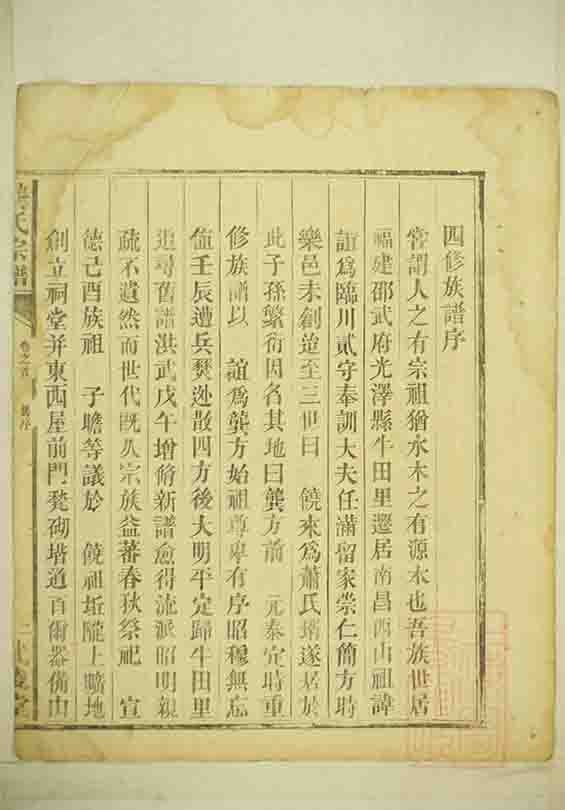 四修族譜序
嘗謂人之有宗祖猶水木之有源本也吾族世居
福建邵武府光澤縣牛田里遷居南昌西山祖諱
誼爲臨川貳守奉訓大夫任滿留家崇仁簡方時
樂邑未創迨至三世曰 饒來爲蕭氏壻遂居於
此子孫繁衍因名其地曰龔方前 元泰定時重
修族譜以 誼爲龔方始祖尊卑有序昭穆無忘
值壬辰遭兵燹迯散四方後大明平定歸牛田里
追尋舊譜洪武戊午增脩新譜愈得流派昭明親
疏不遺然而世代既久宗族益蕃春秋祭祀 宣
德己酉族祖 子瞻等議於 饒祖坵隴上曠地
創立祠堂并東西屋前門甃砌堦道百爾器備由
氏宗譜
卷之首 舊序